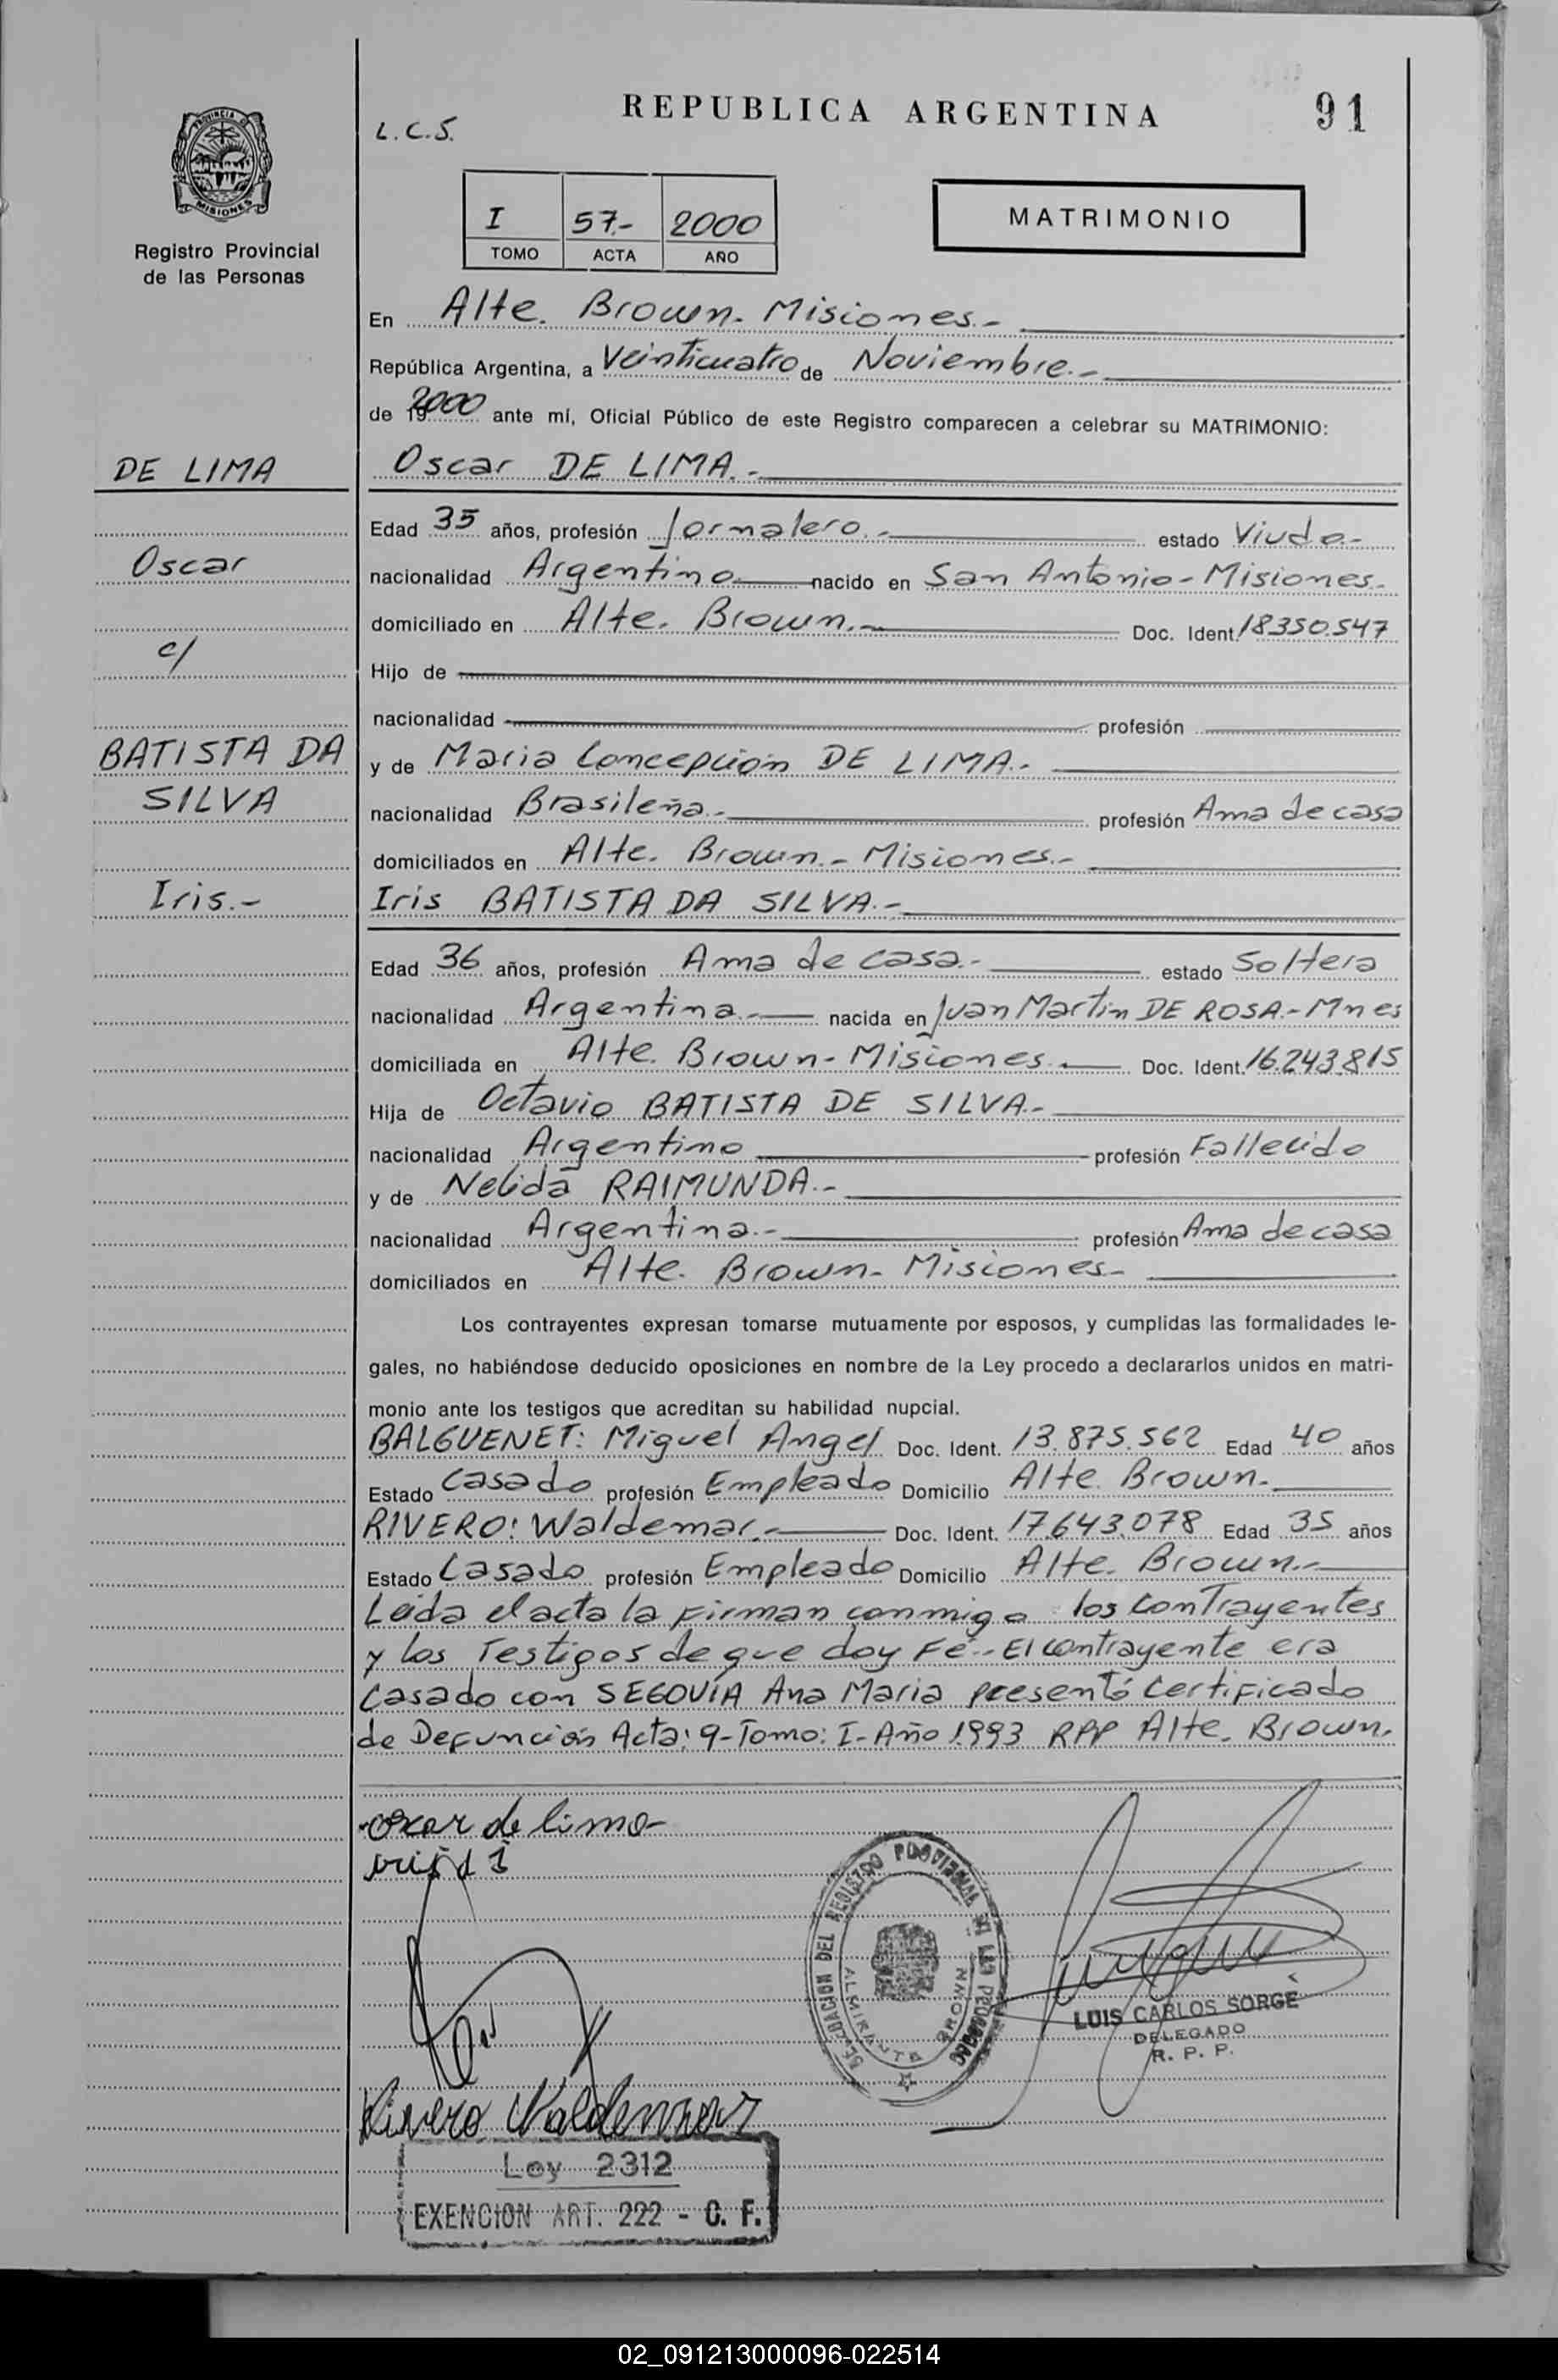 REPUBLICA ARGENTINA
91
L.C.S.
PROVINCIA DE
MISIONES
Registro Provincial
de las Personas
I 57.- 2000
TOMO ACTA AÑO
MATRIMONIO
En Alte. Brown.- Misiones.-
República Argentina, a Veinticuatro de Noviembre.-
de 19 2000 ante mí, Oficial Público de este Registro comparecen a celebrar su MATRIMONIO:
DE LIMA
Oscar DE LIMA.-
Edad 35 años, profesión Jornalero.- estado Viudo.-
Oscar
nacionalidad Argentino nacido en San Antonio-Misiones.
domiciliado en Alte. Brown.- Doc. Ident. 18350.547
c/
Hijo de
nacionalidad profesión
BATISTA DA
y de Maria Concepción DE LIMA.-
SILVA
nacionalidad Brasileña.- profesión Ama de casa
domiciliados en Alte. Brown.- Misiones.-
Iris.-
Iris BATISTA DA SILVA.-
Edad 36 años, profesión Ama de casa.- estado Soltera
nacionalidad Argentina.- nacida en Juan Martin DE ROSA.-Mnes
domiciliada en Alte. Brown-Misiones.- Doc. Ident. 16.243.815
Hija de Octavio BATISTA DE SILVA.-
nacionalidad Argentino profesión Fallecido
y de Nelida RAIMUNDA.-
nacionalidad Argentina.- profesión Ama de casa
domiciliados en Alte. Brown- Misiones-
Los contrayentes expresan tomarse mutuamente por esposos, y cumplidas las formalidades le-
gales, no habiéndose deducido oposiciones en nombre de la Ley procedo a declararlos unidos en matri-
monio ante los testigos que acreditan su habilidad nupcial.
BALGUENET: Miguel Angel Doc. Ident. 13.875.562 Edad 40 años
Estado Casado profesión Empleado Domicilio Alte. Brown.-
RIVERO: Waldemar.- Doc. Ident. 17.643.078 Edad 35 años
Estado Casado profesión Empleado Domicilio Alte. Brown.-
Leida el acta la firman conmigo los contrayentes
y los Testigos de que doy Fé.- El contrayente era
Casado con SEGOVIA Ana Maria presentó Certificado
de Defunción Acta: 9-Tomo: I-Año 1993 RPP Alte. Brown.
oscar de lima
DELEGACION DEL REGISTRO PROVINCIAL DE LAS PERSONAS
ALMIRANTE BROWN
LUIS CARLOS SORGE
DELEGADO
R. P. P.
Rivero Waldemar
Ley 2312
EXENCION ART. 222 - C. F.
02_091213000096-022514